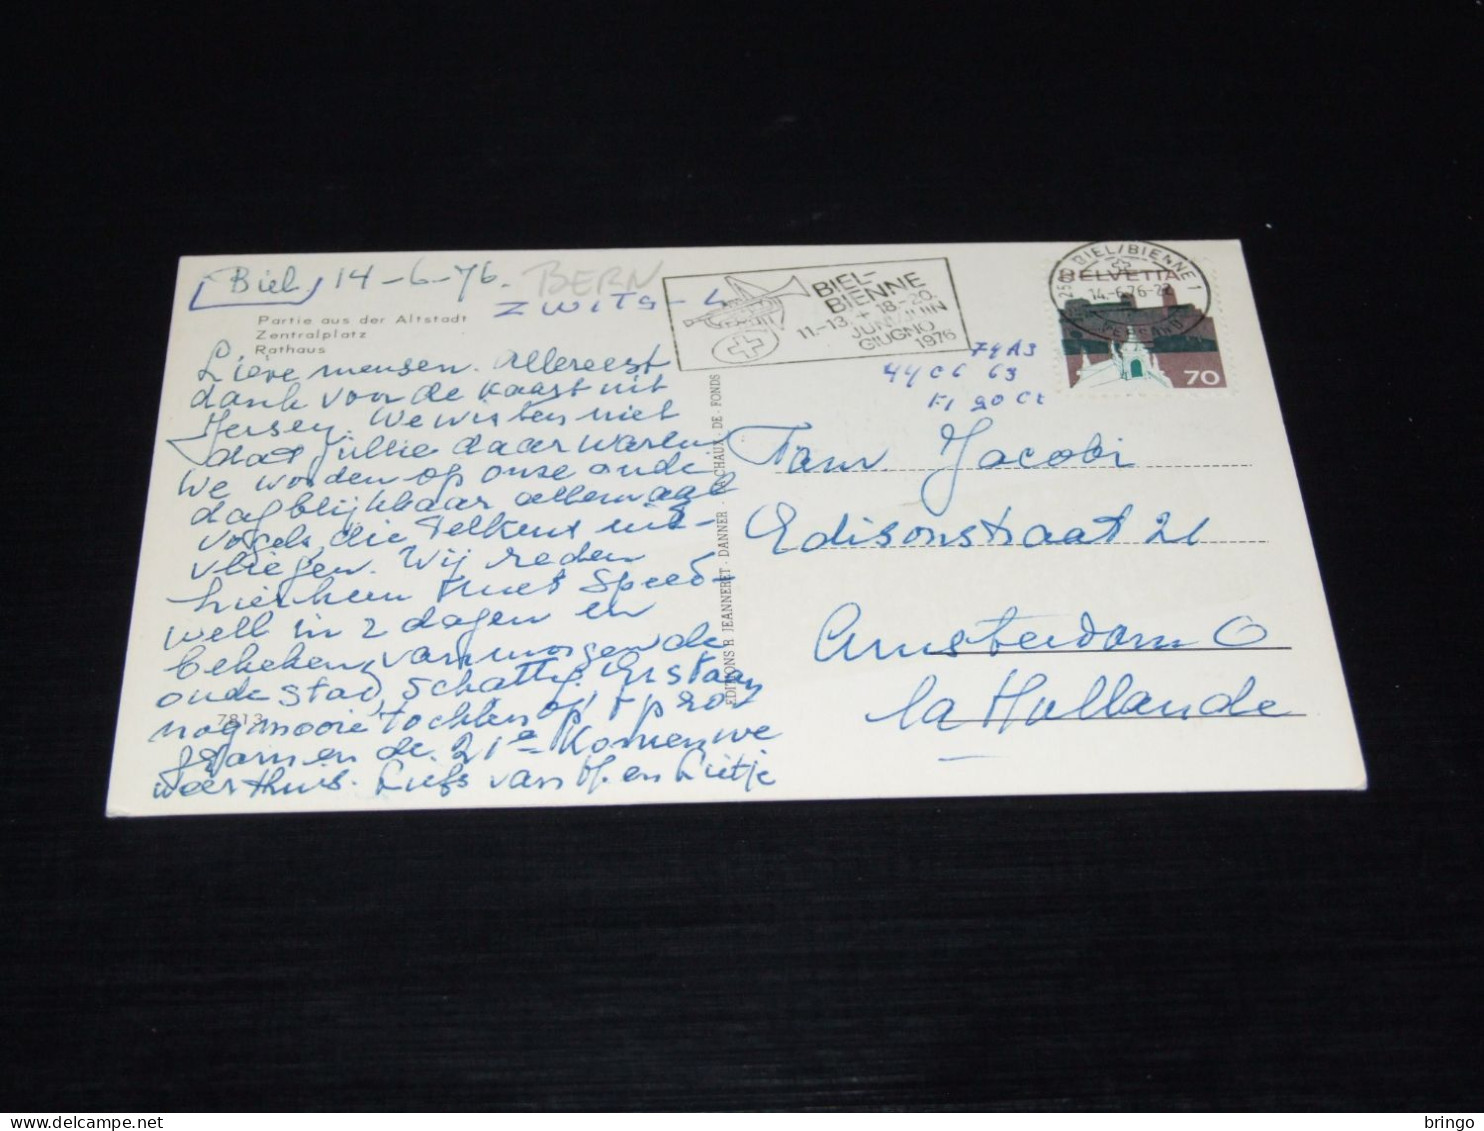 Biel 14-6-76. BERN
ZWITS-L
Partie aus der Altstadt
Zentralplatz
Rathaus
Lieve mensen. Allereest
dank voor de kaart uit
Jersey. We wisten niet
dat jullie daar waren
We worden op onze oude
dag blijkbaar allemaal
vogels, die telkens uit-
vliegen. Wij reden
hierheen met Speed-
well in 2 dagen en
bekeken vanmorgen de
oude stad, schattig. Er staan
nog mooie tochten op 't pro-
gram en de 21e komen we
weer thuis. Liefs van en Lietje
7813
EDITIONS H JEANNERET - DANNER - LA CHAUX - DE - FONDS
BIEL-
BIENNE
11.-13. + 18.-20.
JUNI/JUIN
GIUGNO
1976
2500 BIEL/BIENNE 1
14.-6.76-22
VERSAND
HELVETIA
70
74A3
44CC 63
Fam. Jacobi
Edisonstraat 21
Amsterdam O
la Hollande
bringo